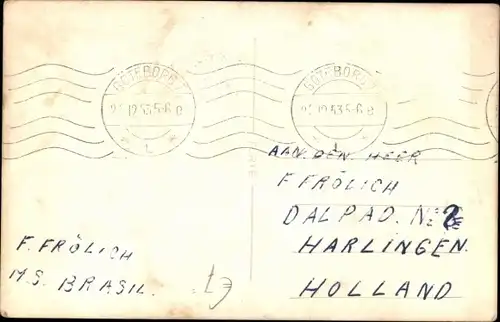 GÖTEBORG
12.53 5-6 e
1
GÖTEBORG
12.53 5-6 e
1
AAN. DEN. HEER
F FRÖLICH
DALPAD. No 2
HARLINGEN.
HOLLAND
F. FRÖLICH
M.S. BRASIL.